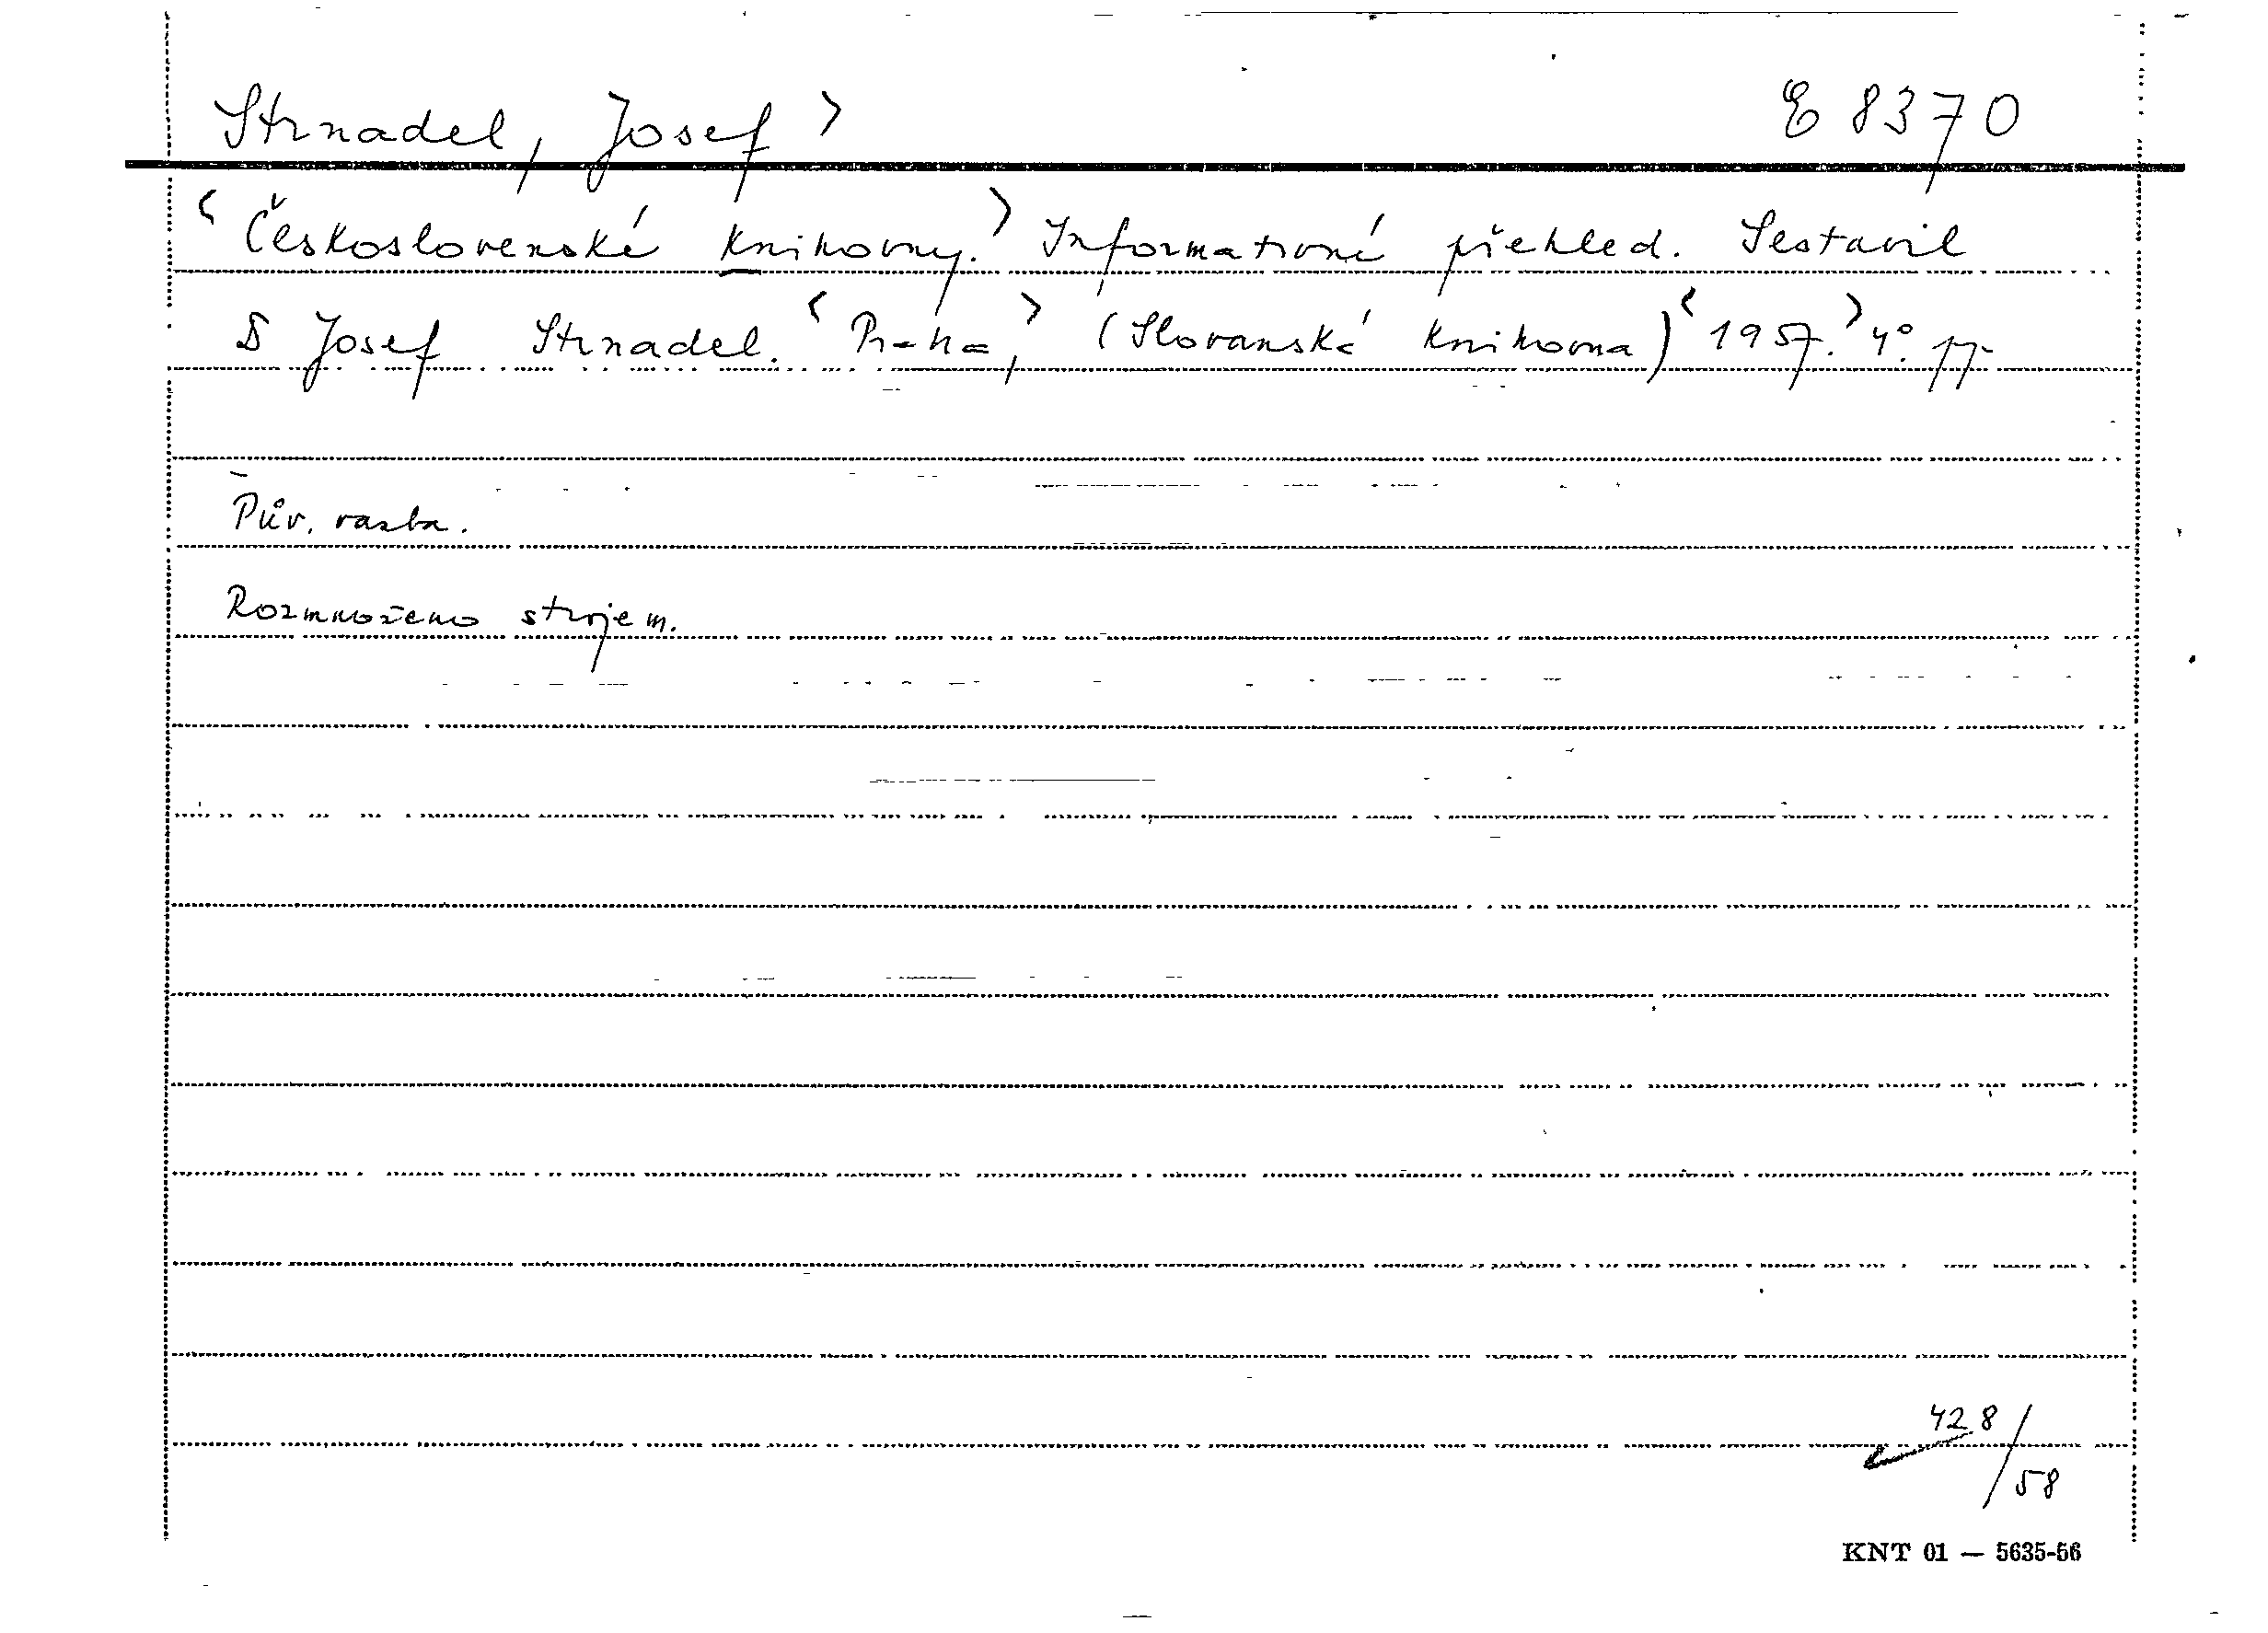 Strnadel, Josef > E 8370
< Československé knihovny. > Informativní přehled. Sestavil
Josef Strnadel. < Praha, > (Slovanská knihovna) < 1957. > 4°.
Pův. vazba.
Rozmnoženo strojem.
428/58
KNT 01 — 5635-56